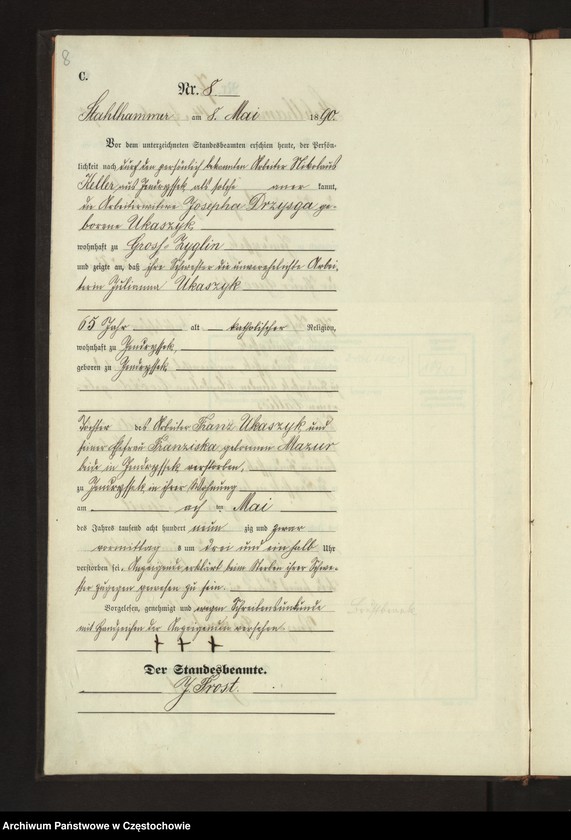 8
C.
Nr. 8.
Stahlhammer am 8. Mai 1890.
Vor dem unterzeichneten Standesbeamten erschien heute, der Persön-
lichkeit nach durch den persönlich bekannten Arbeiter Nikolaus
Keller aus Jendryssek als solche aner kannt,
die Arbeiterwitwe Josepha Drzysga ge-
borene Ukaszyk
wohnhaft zu Groß-Zyglin
und zeigte an, daß ihre Schwester die unverehelichte Arbei-
terin Julianna Ukaszyk
65 Jahr alt katholischer Religion,
wohnhaft zu Jendryssek,
geboren zu Jendryssek,
Tochter des Arbeiter Franz Ukaszyk und
seiner Ehefrau Franziska geborenen Mazur
beide in Jendryssek verstorben,
zu Jendryssek in ihrer Wohnung
am ten Mai
des Jahres tausend acht hundert neun zig und zwar
vormittag s um drei und ein halb Uhr
verstorben sei. Anzeigende erklärt beim Sterben ihrer Schwe-
ster zugegen gewesen zu sein.
Vorgelesen, genehmigt und wegen Schreibensunkunde
mit Handzeichen der Anzeigenden versehen.
+ + +
Der Standesbeamte.
Archiwum Państwowe w Częstochowie